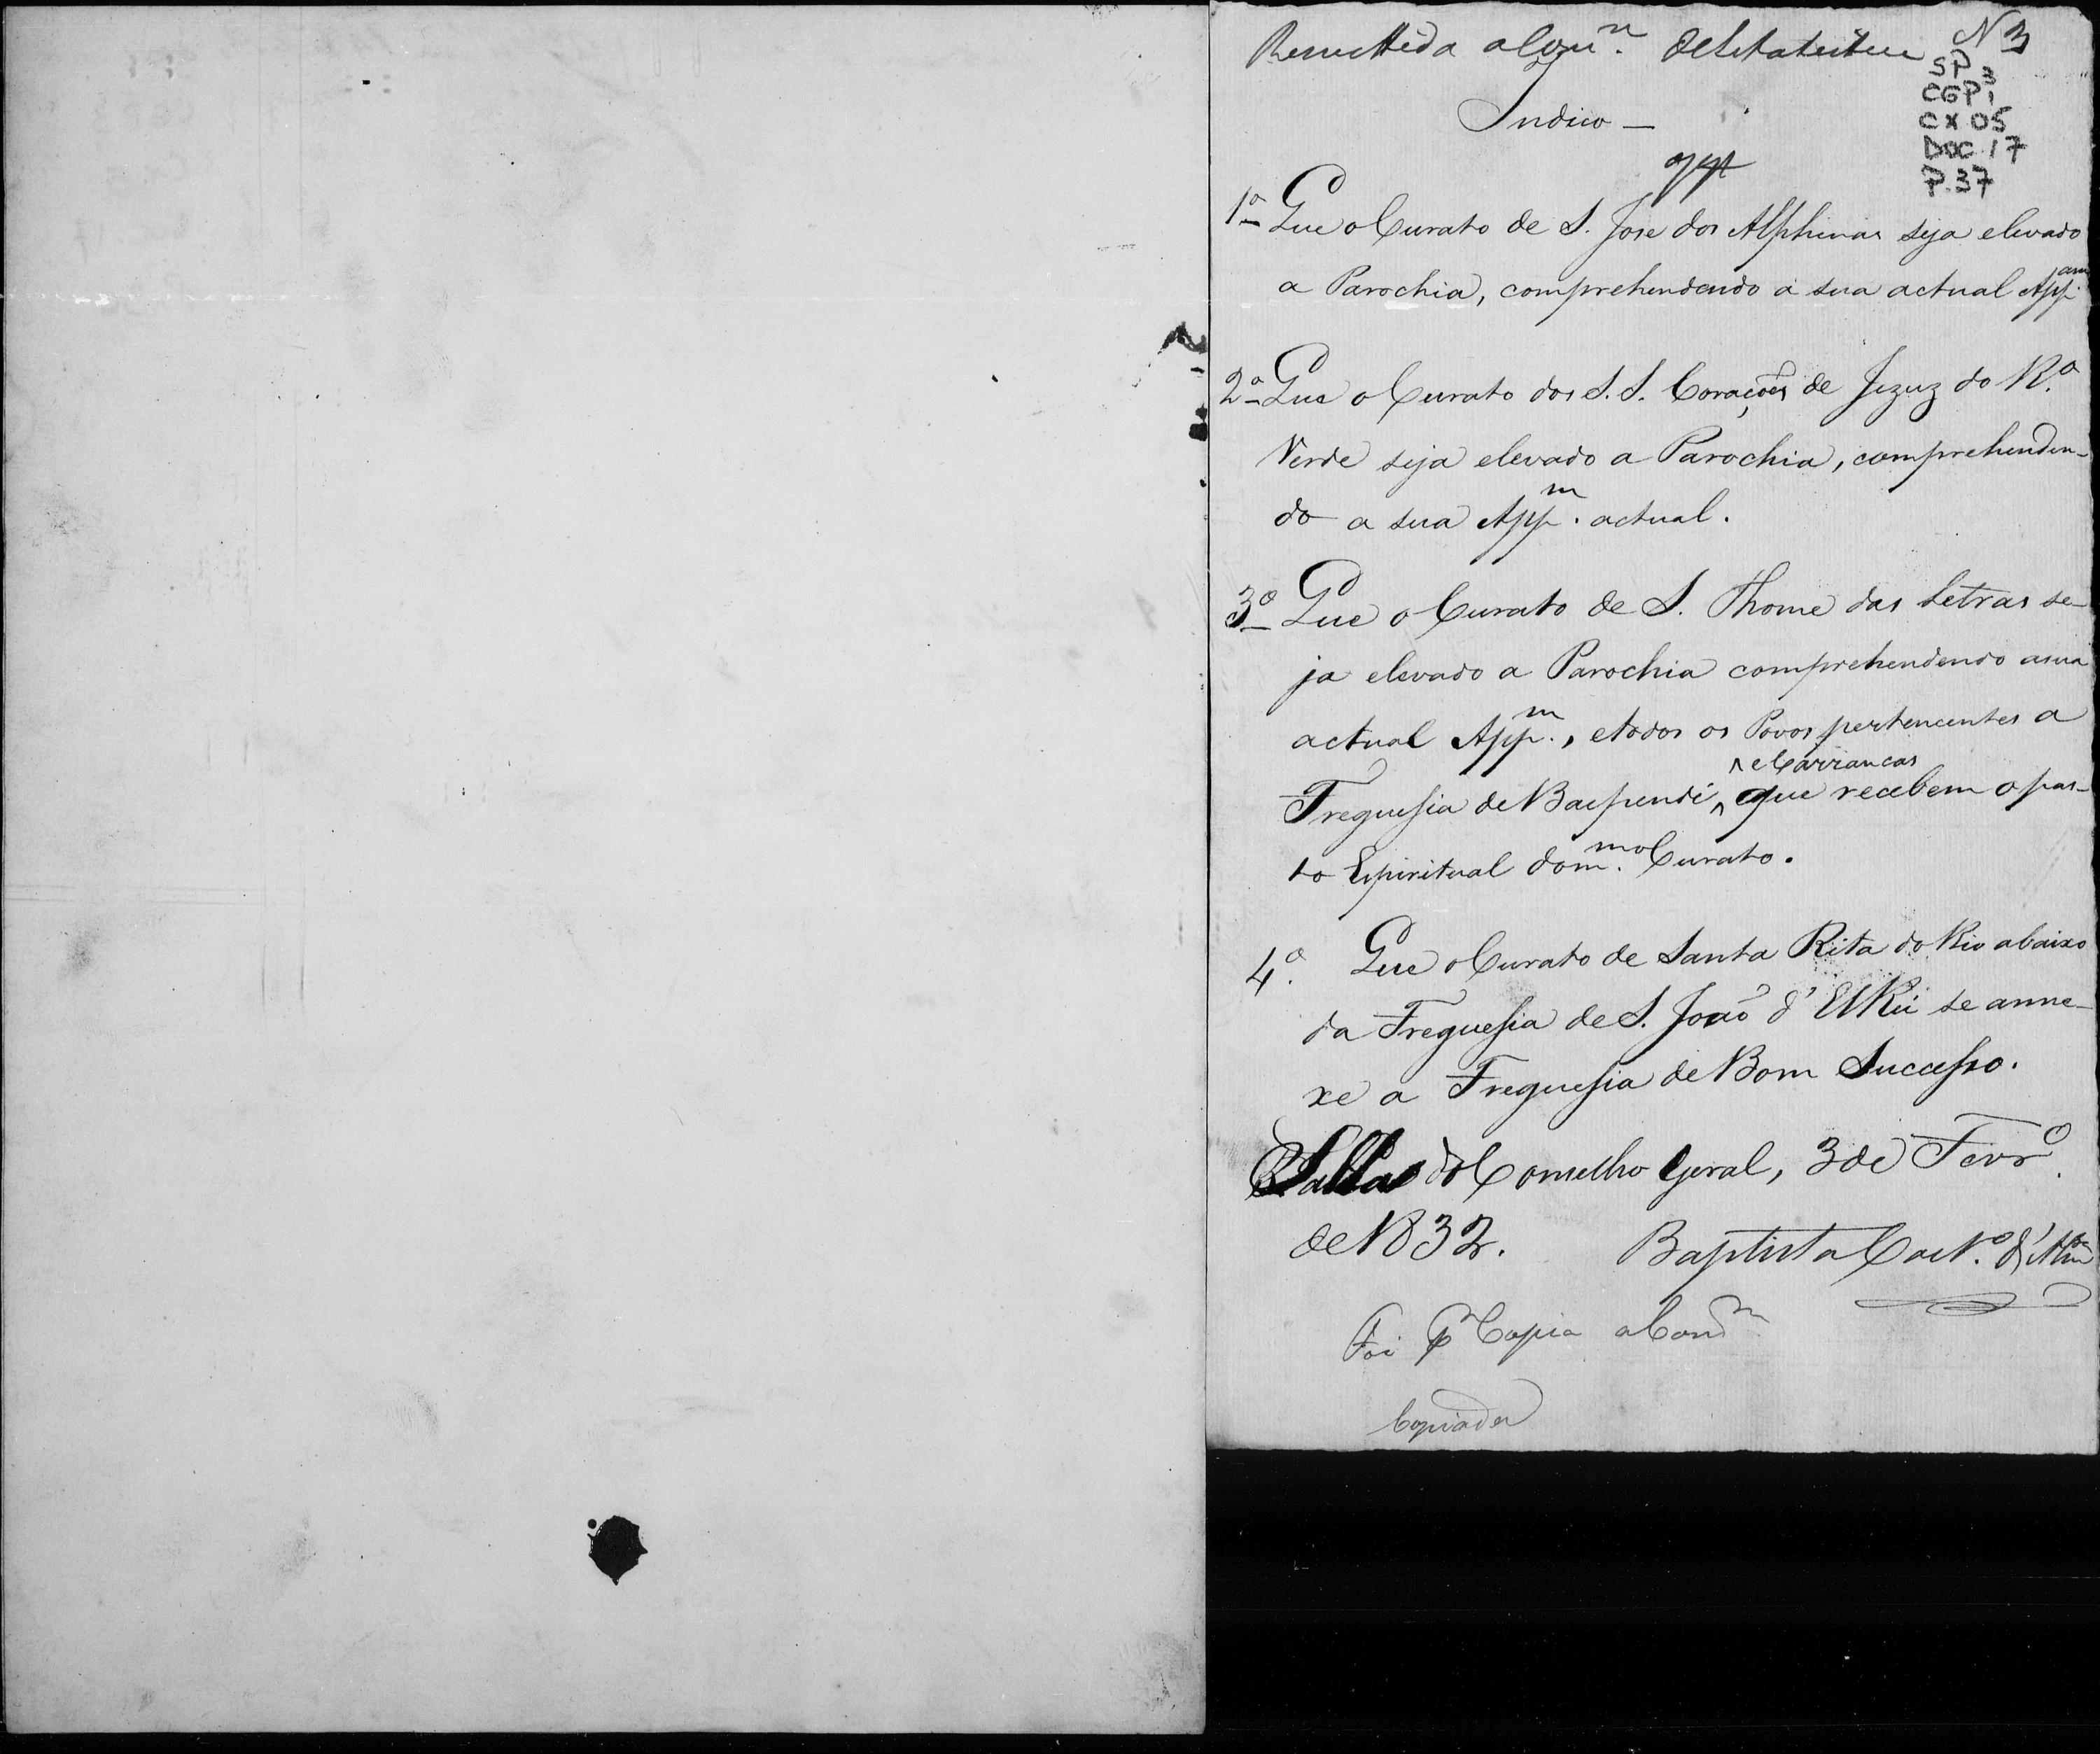 Remettida a Com.m de Estatistica N 3
SP 3
CGP 1
CX 05
DOC. 17
P. 37
Indico —
1º Que o Curato de S. Jose dos Alphenas seja elevado
a Parochia, comprehendendo a sua actual App.am
2º Que o Curato dos S. S. Corações de Jezuz do R.º
Verde seja elevado a Parochia, comprehenden-
do a sua App.m actual.
3º Que o Curato de S. Thome das Letras se-
ja elevado a Parochia comprehendendo asua
actual App.m, etodos os Povos pertencentes a
Freguesia de Baependi, e Carrancas que recebem o pas-
to Espiritual dom.mo Curato.
4º. Que o Curato de Santa Rita do Rio abaixo
da Freguesia de S. João d'ElRei se anne-
xe a Freguesia de Bom Successo.
Salla do Conselho Geral, 3 de Fevr.º
de 1832. Baptista Caet.º d'Alm.da
Foi p Copia a Com.m
Copiada